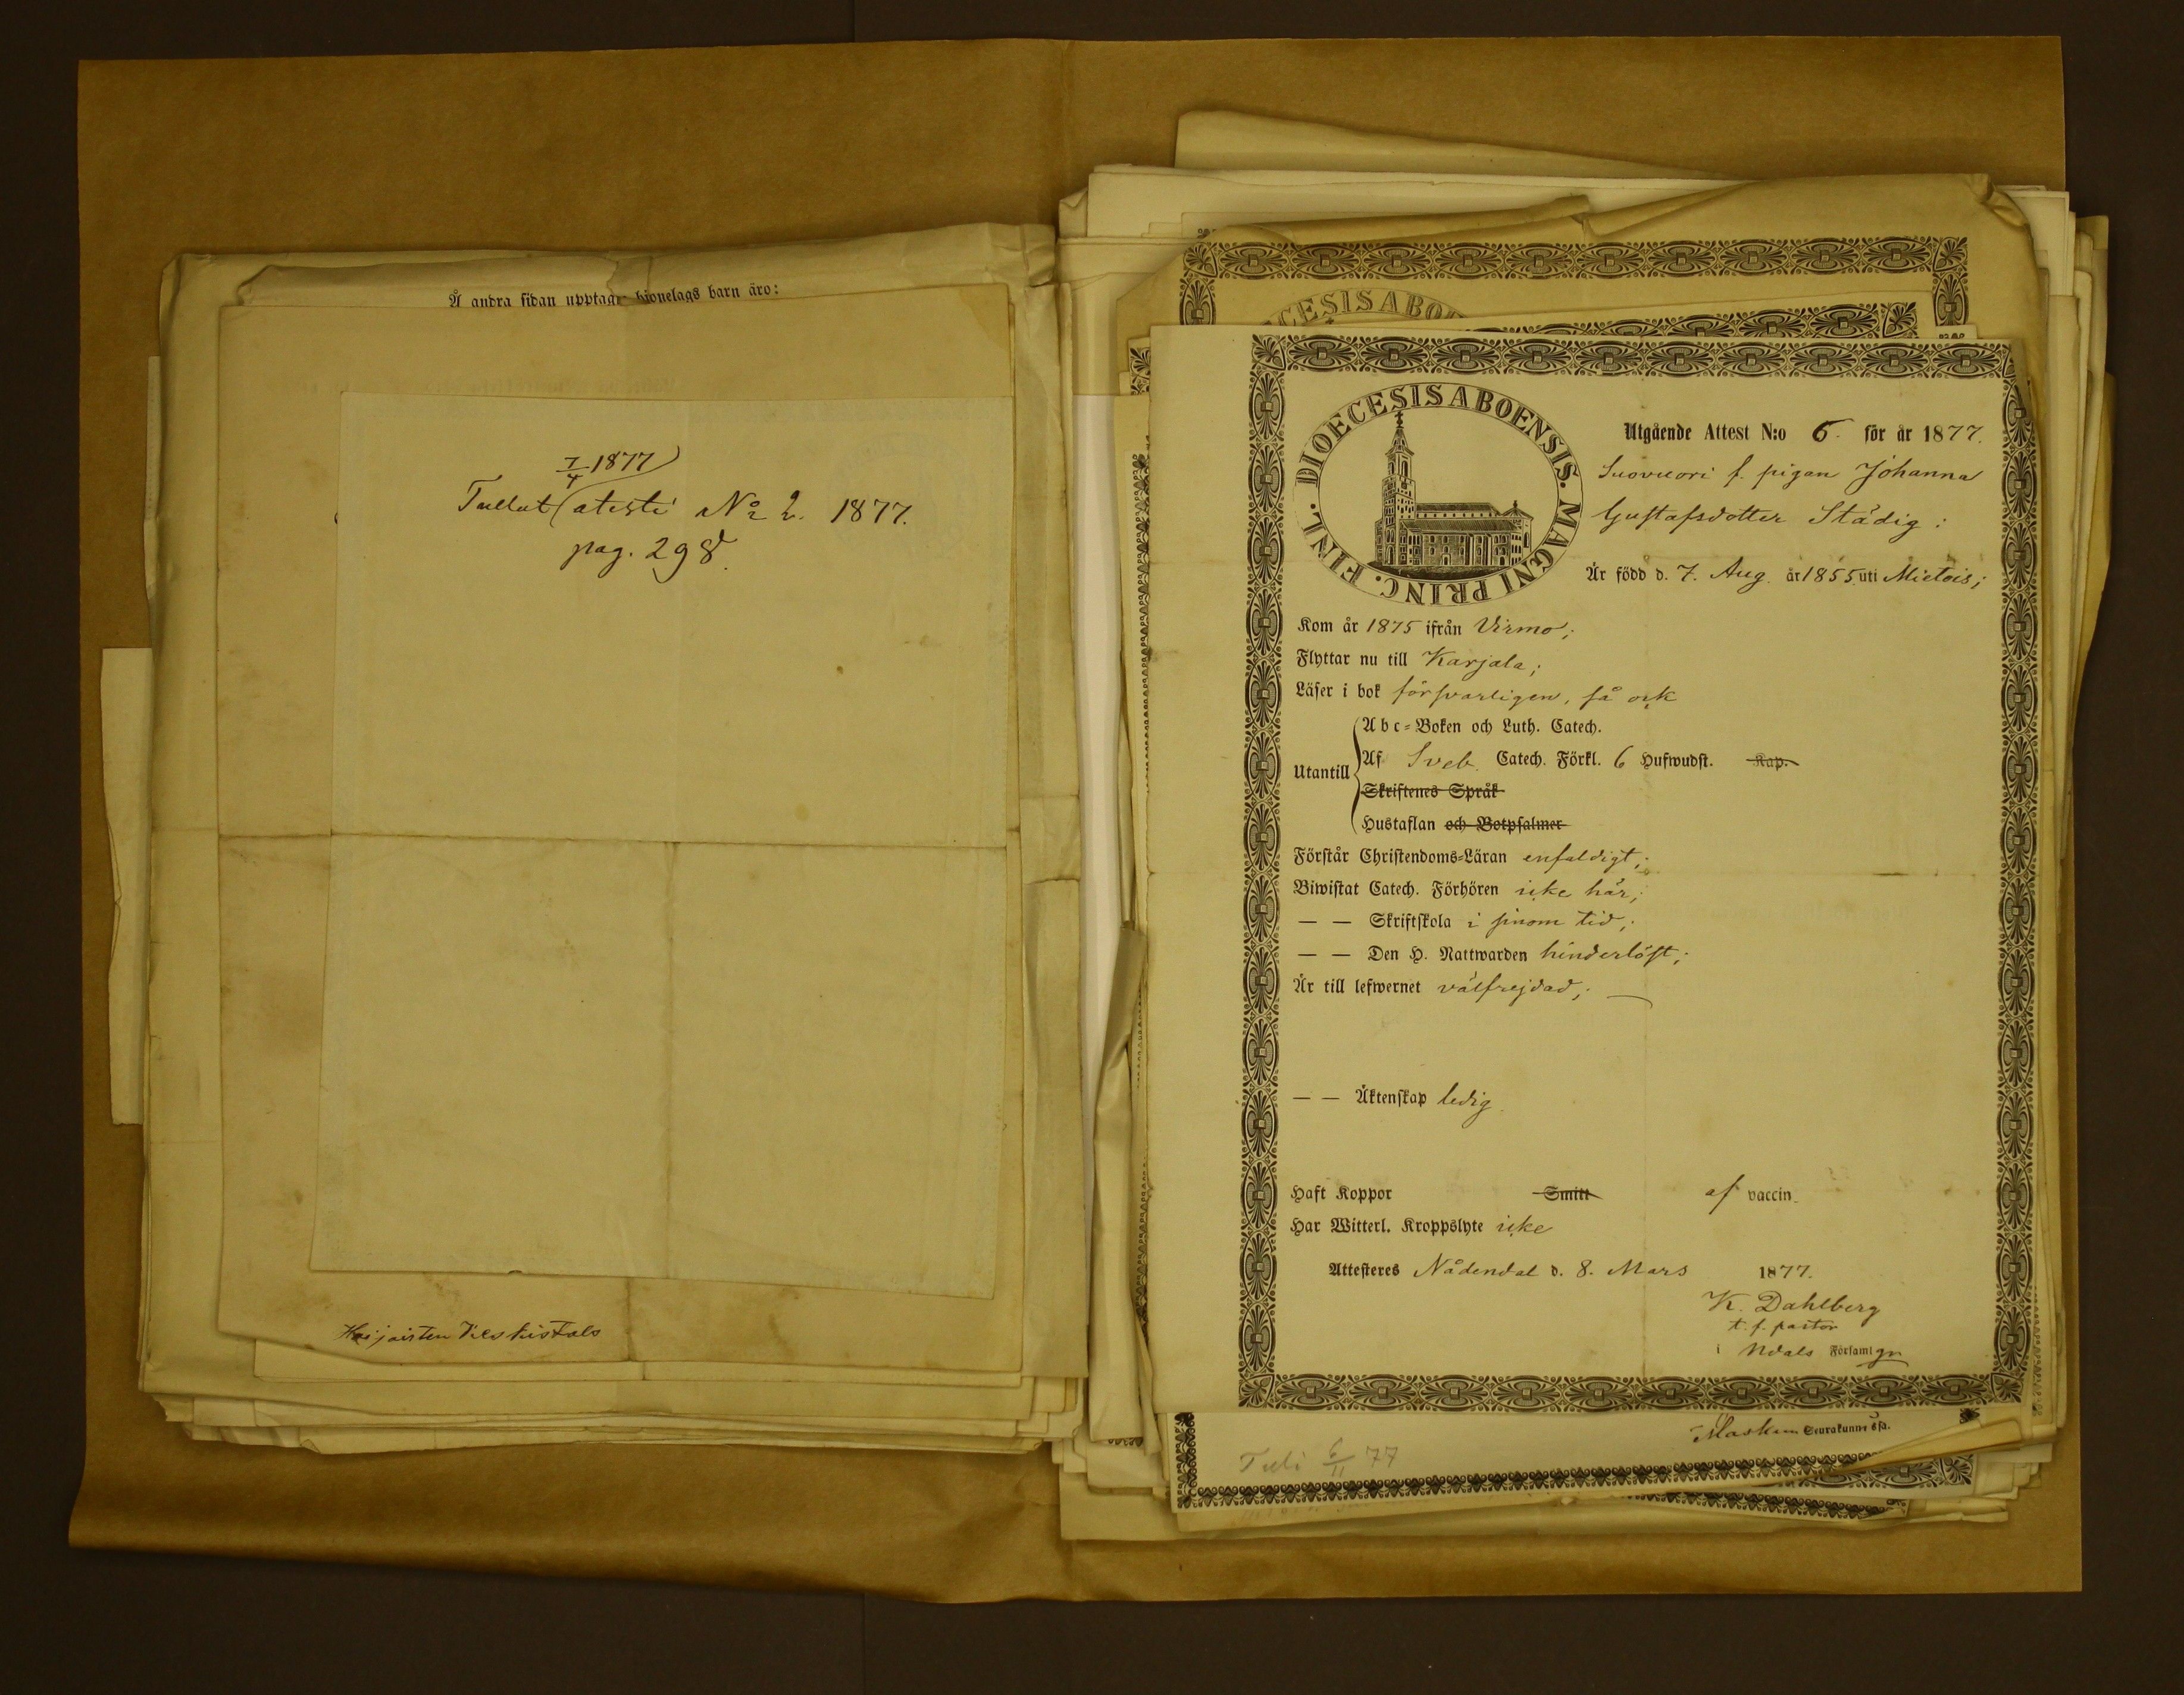 Å andra sidan upptagne hionelags barn äro:
7/4 1877
Tullut atesti No 2. 1877.
pag. 298.
DIOECESIS ABOENSIS. MAGNI PRINC. FINL.
Utgående Attest N:o 6. för år 1877.
Suovuori f. pigan Johanna
Gustafsdotter Städig:
Är född d. 7. Aug. år 1855 uti Mietois;
Kom år 1875 ifrån Virmo;
Flyttar nu till Karjala;
Läser i bok försvarligen, så ock
Abc-Boken och Luth. Catech.
Utantill Af Sveb. Catech. Förkl. 6 Hufwudst. Kap.
Skriftenes Språk
Hustaflan och Botpsalmer
Förstår Christendoms-Läran enfaldigt;
Biwistat Catech. Förhören icke här;
— — Skriftskola i sinom tid;
— — Den H. Nattwarden hinderlöst;
Är till lefwernet välfrejdad;
— — Äktenskap ledig
Haft Koppor Smitt af vaccin
Har Witterl. Kroppslyte icke
Attesteres Nådendal d. 8. Mars 1877.
K. Dahlberg
t. f. pastor
i Ndals Församlgn
Maskun Seurakunnasa.
Tuli 6/11 77
CESIS ABO